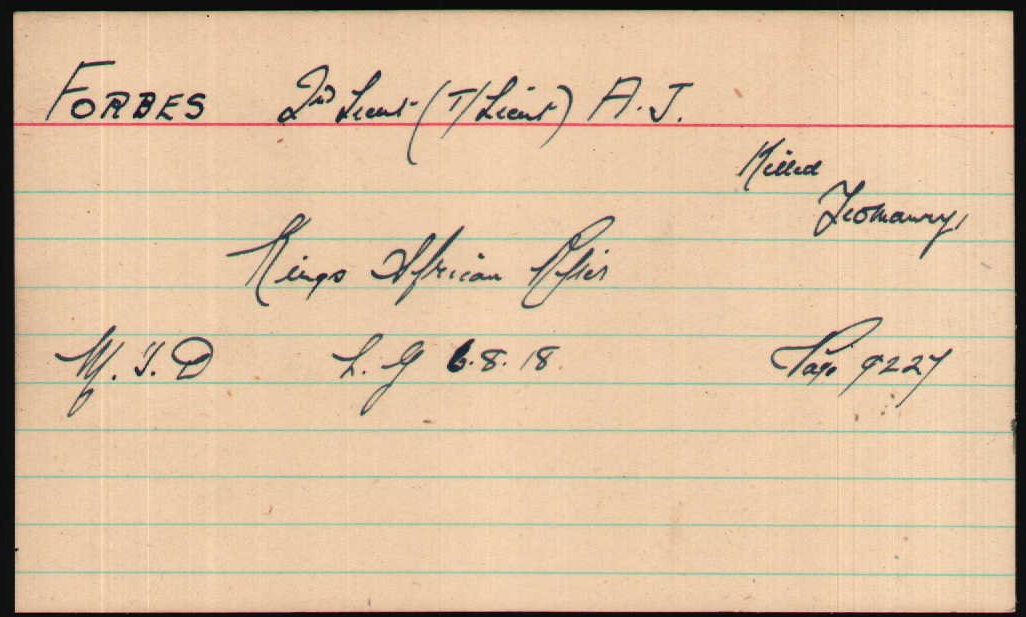 FORBES 2nd Lieut (T/Lieut) A.J.
Killed
Yeomanry,
Kings African Rfles
M.I.D L.G 6.8.18. Page 9227